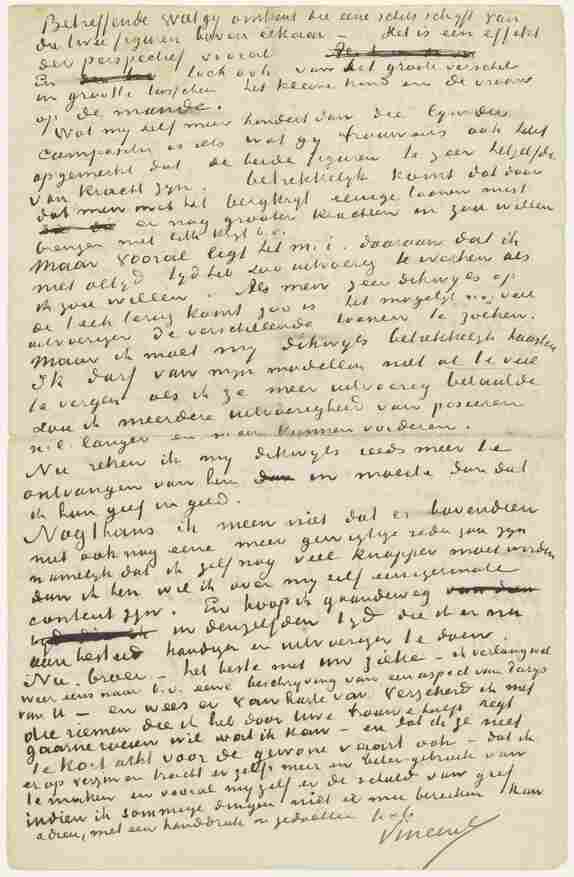 Betreffende wat gy omtrent die eene schets schryft van
die twee figuren boven elkaar — Het is een effekt
der perspectief vooral
En toch ook van het groote verschil
in grootte tusschen het kleine kind en de vrouw
op de mande.
Wat my zelf meer hindert dan die lynder
compositie is iets wat gy trouwens ook hebt
opgemerkt dat de beide figuren te zeer hetzelfde
van kracht zyn. betrekkelyk komt dat door
dat men met het bergkryt eenige toonen mist
er nog grooter krachten in zou willen
brengen met lith. kryt b.v.
Maar vooral ligt het m.i. daaraan dat ik
niet altyd tyd heb zoo uitvoerig te werken als
ik zou willen. Als men zeer dikwyls op
de teek terug komt zoo is het mogelyk veel
uitvoeriger de verschillende toonen te zoeken.
Maar ik moet my dikwyls betrekkelyk haasten
Ik durf van myn modellen niet al te veel
te vergen als ik ze meer uitvoerig betaalde
zou ik meerdere uitvoerigheid van poseeren
n.l. langer en meer kunnen vorderen.
Nu reken ik my dikwyls reeds meer te
ontvangen van hen in moeite dan dat
ik hun geef in geld.
Nogthans ik meen niet dat er bovendien
niet ook nog eene meer gewigtige reden zou zyn
namelyk dat ik zelf nog veel knapper moet worden
dan ik ben wil ik over my zelf eenigermate
content zyn. En hoop ik gaandeweg
in denzelfden tyd die ik er nu
aan besteed handiger en uitvoeriger te doen.
Nu broer — het beste met uw zieke — ik verlang wel
weer eens naar b.v. eene beschryving van een aspect van Parys
van U — en wees er van harte van verzekerd ik met
die riemen die ik heb door Uwe trouwe hulp regt
gaarne roeien wil wat ik kan — en dat ik ze niet
te kort acht voor de gewone vaart ook — dat ik
er op verzin en tracht er zelfs meer en beter gebruik van
te maken en vooral my zelf er de schuld van geef
indien ik sommige dingen niet er mee bereiken kan
adieu, met een handdruk in gedachten t. à t.
Vincent